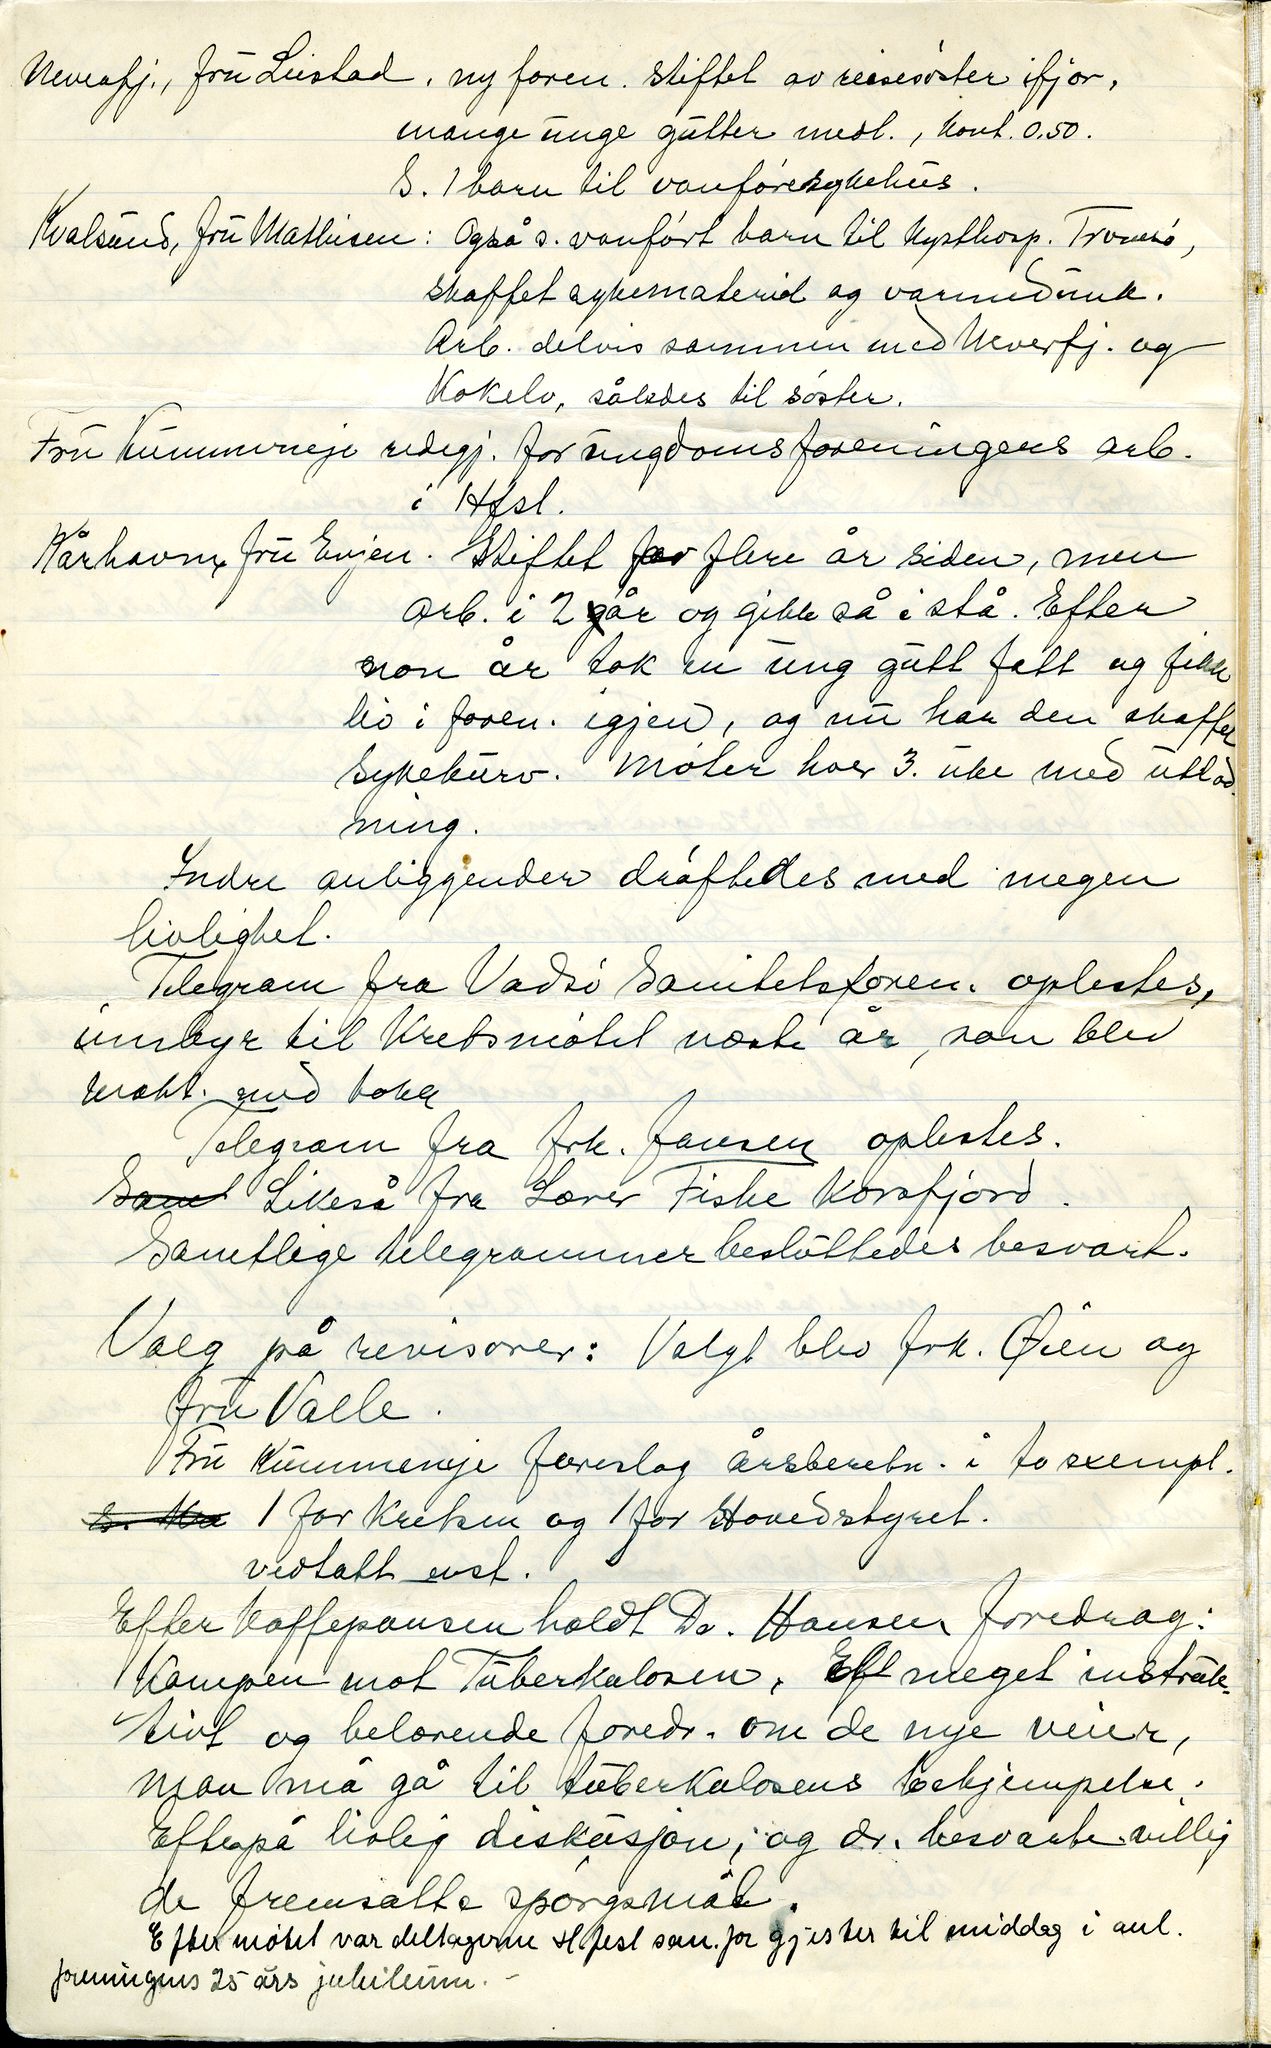 Neverfj., frü Leistad, ny foren. stiftet av reisesøster ifjor,
mange ünge gütter medl., kont. 0.50.
S. 1 barn til vanføresykehüs.
Kvalsünd, frü Mathisen: Også s. vanført barn til Kysthosp. Tromsø,
skaffet sykemateriel og varmedünk.
Arb. delvis sammen med Neverfj. og
Kokelv, således til søster.
Frü Kümmeneje redegj. for üngdomsforeningens arb.
i Hfst.
Kårhavn, frü Evjen. Stiftet for flere år siden, men
arb. i 2 år og gikk så i stå. Efter
non år tok en üng gütt fatt og fikk
liv i foren. igjen, og nü har den skaffet
sykekürv. Møter hver 3. üke med ütlod-
ning.
Indre anliggender drøftedes med megen
livlighet.
Telegram fra Vadsø Sanitetsforen. oplestes,
innbyr til Kretsmøtet næste år, som blev
mott. med takk
Telegram fra frk. Jansen oplestes.
Samt Likeså fra Lærer Fiske Korsfjord.
Samtlige telegrammer beslüttedes besvart.
Valg på revisorer: Valgt blev frk. Øien og
frü Valle.
Frü Kümmeneje foreslog årsberetn. i to exempl.
1 for Kretsen og 1 for Hovedstyret.
vedtatt enst.
Efter Kaffepausen holdt Dr. Hansen foredrag:
Kampen mot Tüberkulosen. Ett meget instrük-
tivt og belærende foredr. om de nye veier,
man må gå til tüberkulosens bekjempelse.
Efterpå livlig disküsjon, og dr. besvarte villig
de fremsatte spørgsmål.
Efter møtet var deltagerne Hfest san. for gjester til middag i anl.
foreningens 25 års jubileüm.-